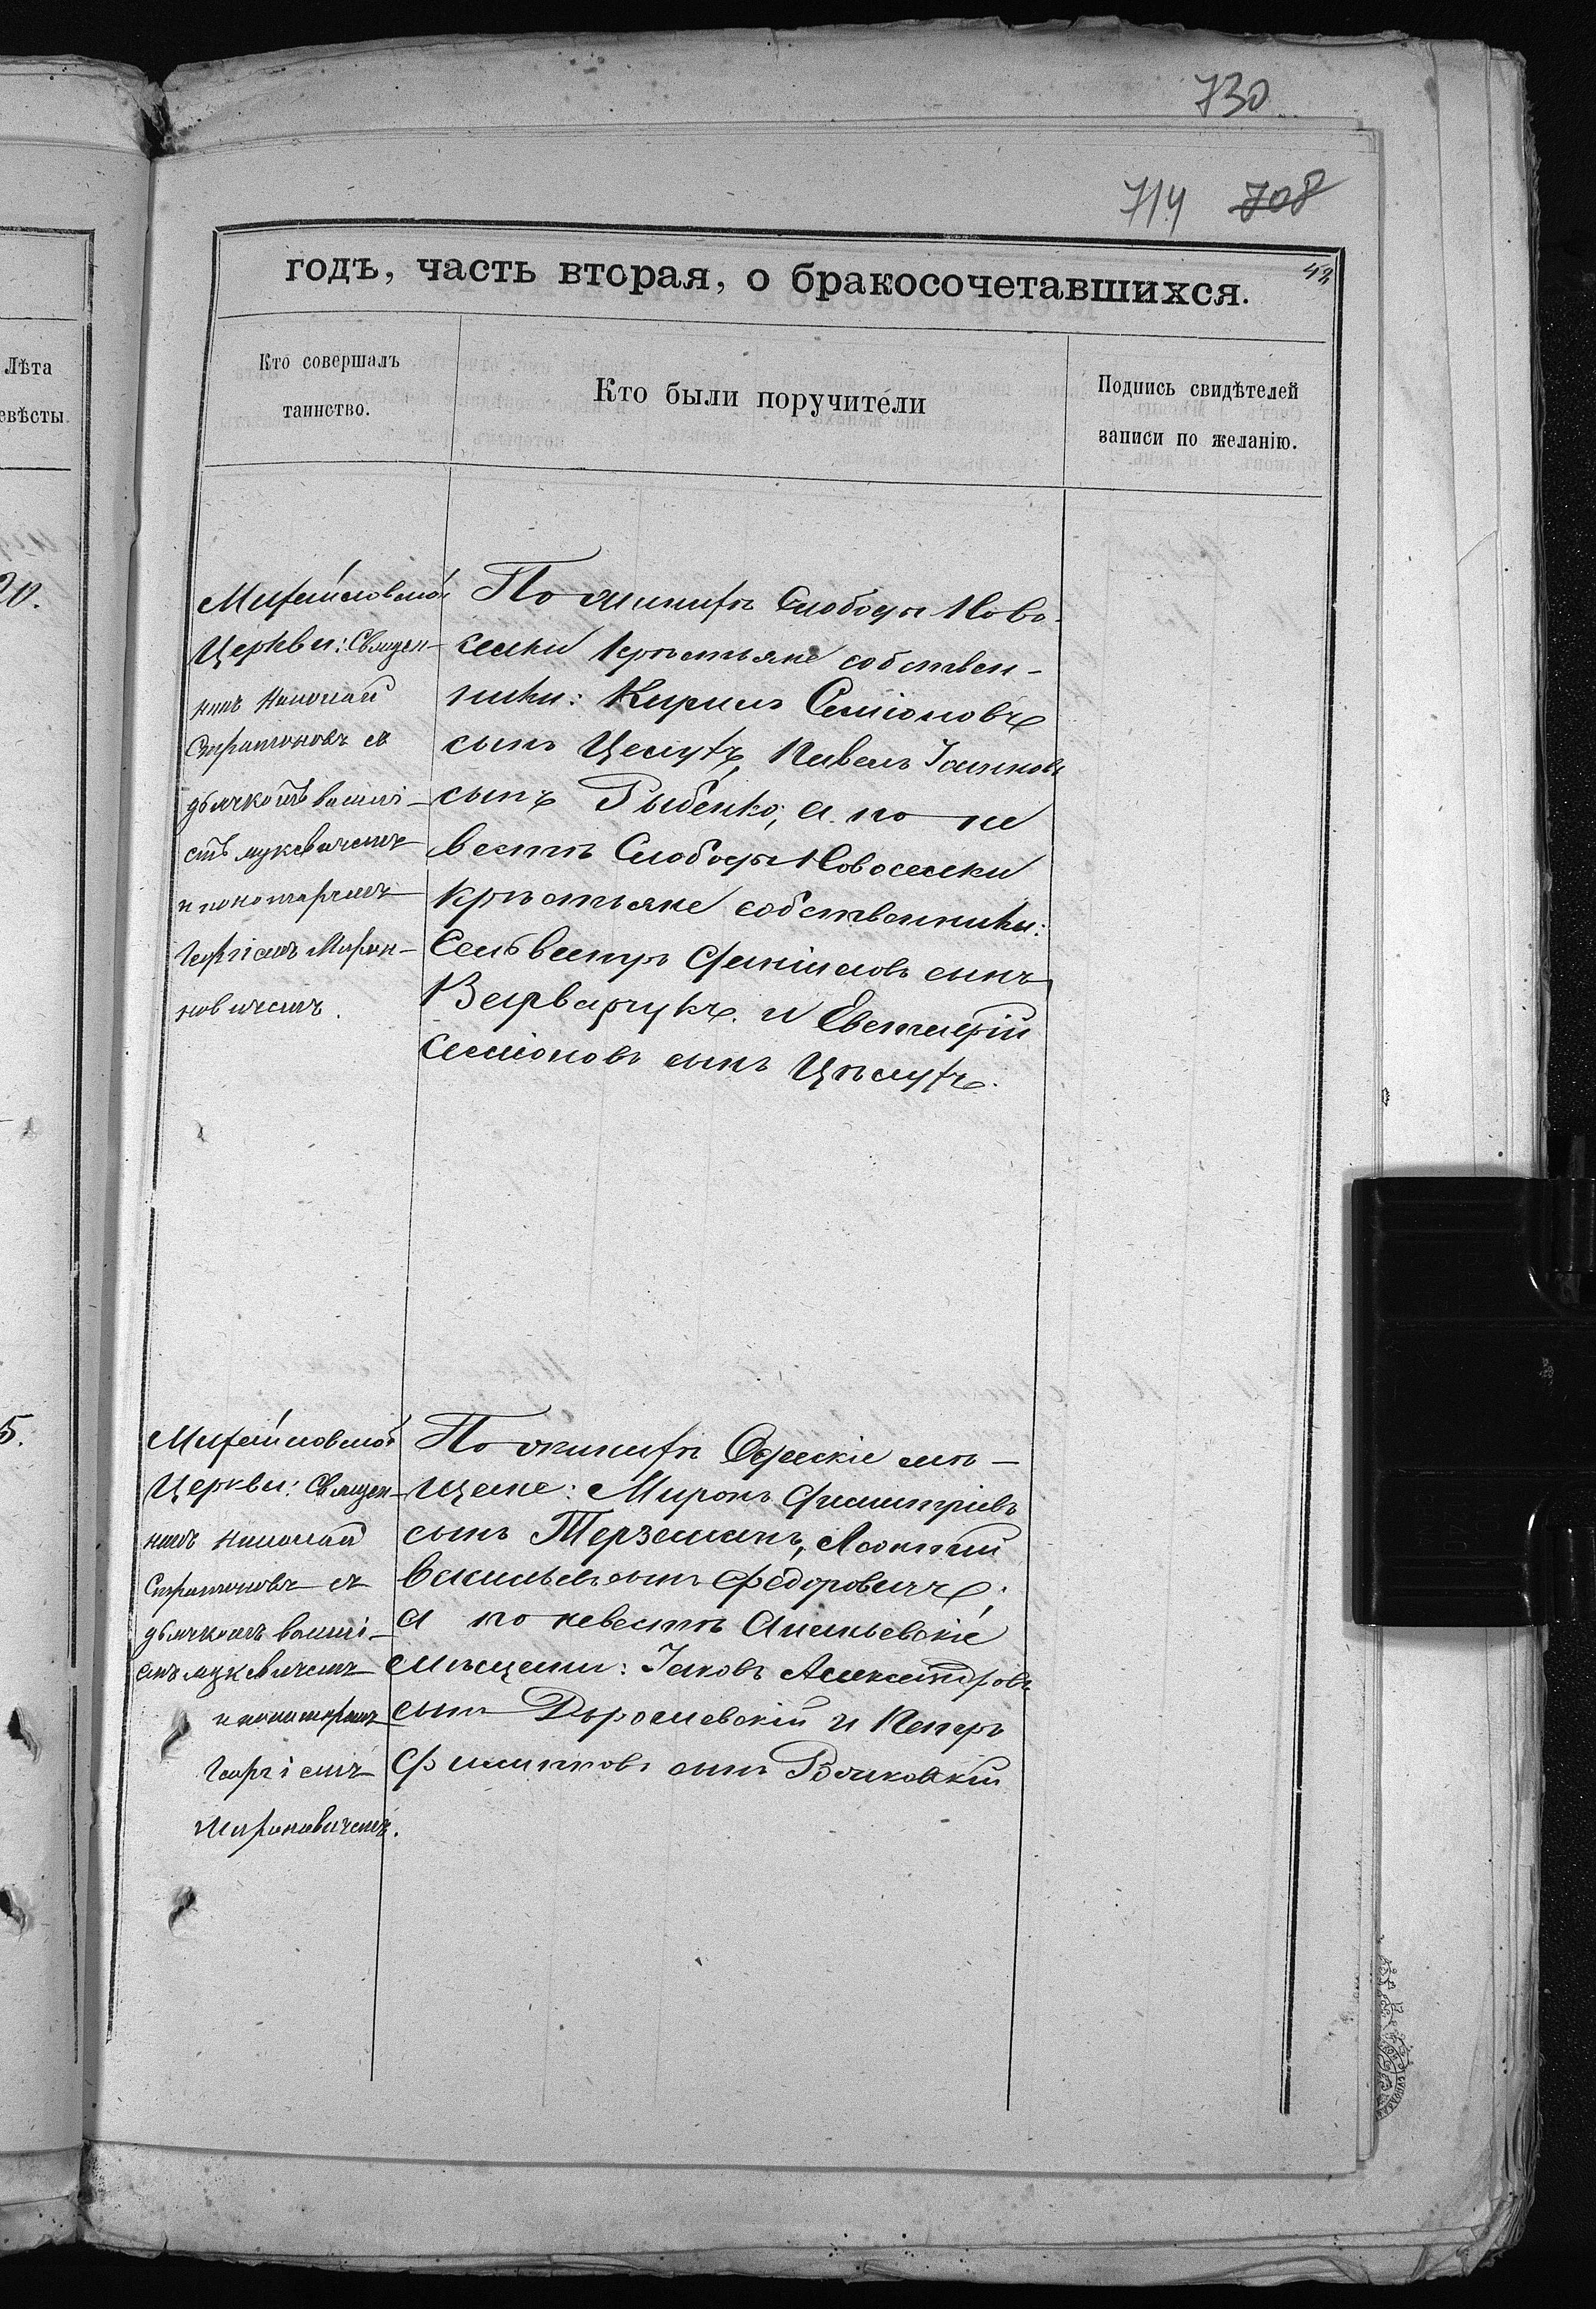 730
714 708
42
годъ, часть вторая, о бракосочетавшихся.
Лѣта
евѣсты.
Кто совершалъ
таинство.
Кто были поручители
Подпись свидѣтелей
записи по желанію.
20.
Михайловской
Церкви: Священ-
никъ Николай
Стратоновъ съ
дьячкомъ васи-
и пономаремъ
Георгіемъ Миро-
новичемъ.
По жинихѣ Слободы Ново-
селки Крѣстьяне собствен-
ники: Кирилъ Семіоновъ
сынъ Целухъ, Павелъ Іоаковъ
сынъ Рыбенко; а по не
вестѣ Слободы Новоселки
Крѣстьяне собственники:
Сельвестръ сынъ
Варварукъ. и Евстафій
Семіоновъ сынъ Цѣлухъ.
5.
Михайловской
Церкви: Священ-
никъ Николай
Стратоновъ съ
дьячкомъ васи-
и пономаремъ
Георгіемъ
Мироновичемъ.
По жинихѣ Одескіе мѣ-
щане: Миронъ Димитріевъ
сынъ Терземанъ,
Васильевъ сынъ Федоровичъ;
а по невестѣ Ананьевскіе
мѣщани: Іаковъ Александровъ
сынъ и Петръ
Филиповъ сынъ